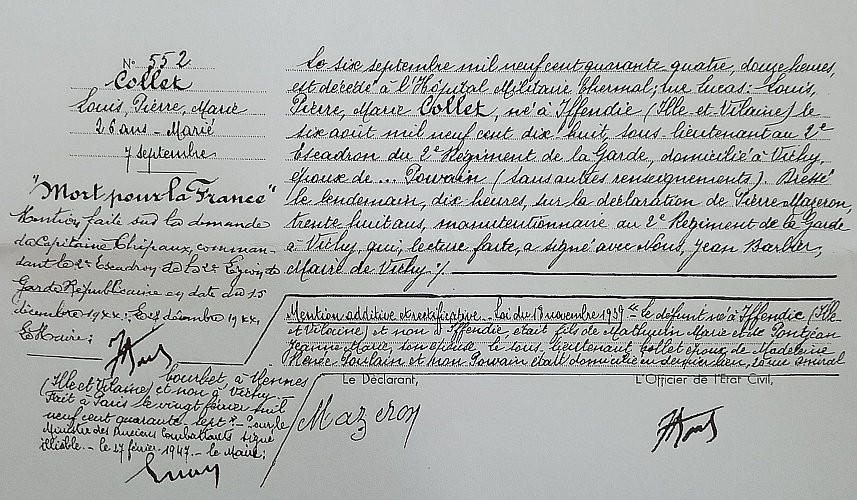 N° 552
Collet
Louis, Pierre, Marie
26 ans - Marié
7 septembre
"Mort pour la France"
Mention faite sur la demande
du Capitaine Chipaux, comman-
dant le 2e Escadron de la 2e Légion de
Garde Républicaine en date du 15
décembre 1944: Le décembre 1944,
Le Maire;
Le six septembre mil neuf cent quarante quatre, douze heures,
est décédé à l'Hôpital Militaire Thermal; rue Lucas: Louis,
Pierre, Marie Collet, né à Iffendie (Ille et Vilaine) le
six août mil neuf cent dix huit, sous lieutenant au 2e
Escadron du 2e Régiment de la Garde, domicilié à Vichy,
époux de ... Powain (sans autres renseignements). Dressé
le lendemain, dix heures, sur la déclaration de Pierre Mazeron,
trente huit ans, manutentionnaire au 2e Régiment de la Garde
à Vichy, qui, lecture faite, a signé avec Nous, Jean Barbier,
Maire de Vichy ./.
Mention additive et rectificative. Loi du 18 novembre 1939 le défunt né à Iffendic (Ille
et Vilaine) et non à Iffendie, était fils de Mathurin Marie et de Pontjean
Jeanne Marie, son épouse. Le sous, lieutenant Collet époux de Madeleine
Renée Poulain et non Powain était domicilié en dernier lieu, 20 rue amiral
courbet, à Rennes
(Ille et Vilaine) et non à Vichy.
Fait à Paris le vingt février mil
neuf cent quarante sept. - Pour le
Ministre des Anciens Combattants signé
illisible. - le 27 février 1947. - le Maire;
Le Déclarant,
L'Officier de l'État Civil,
Mazeron